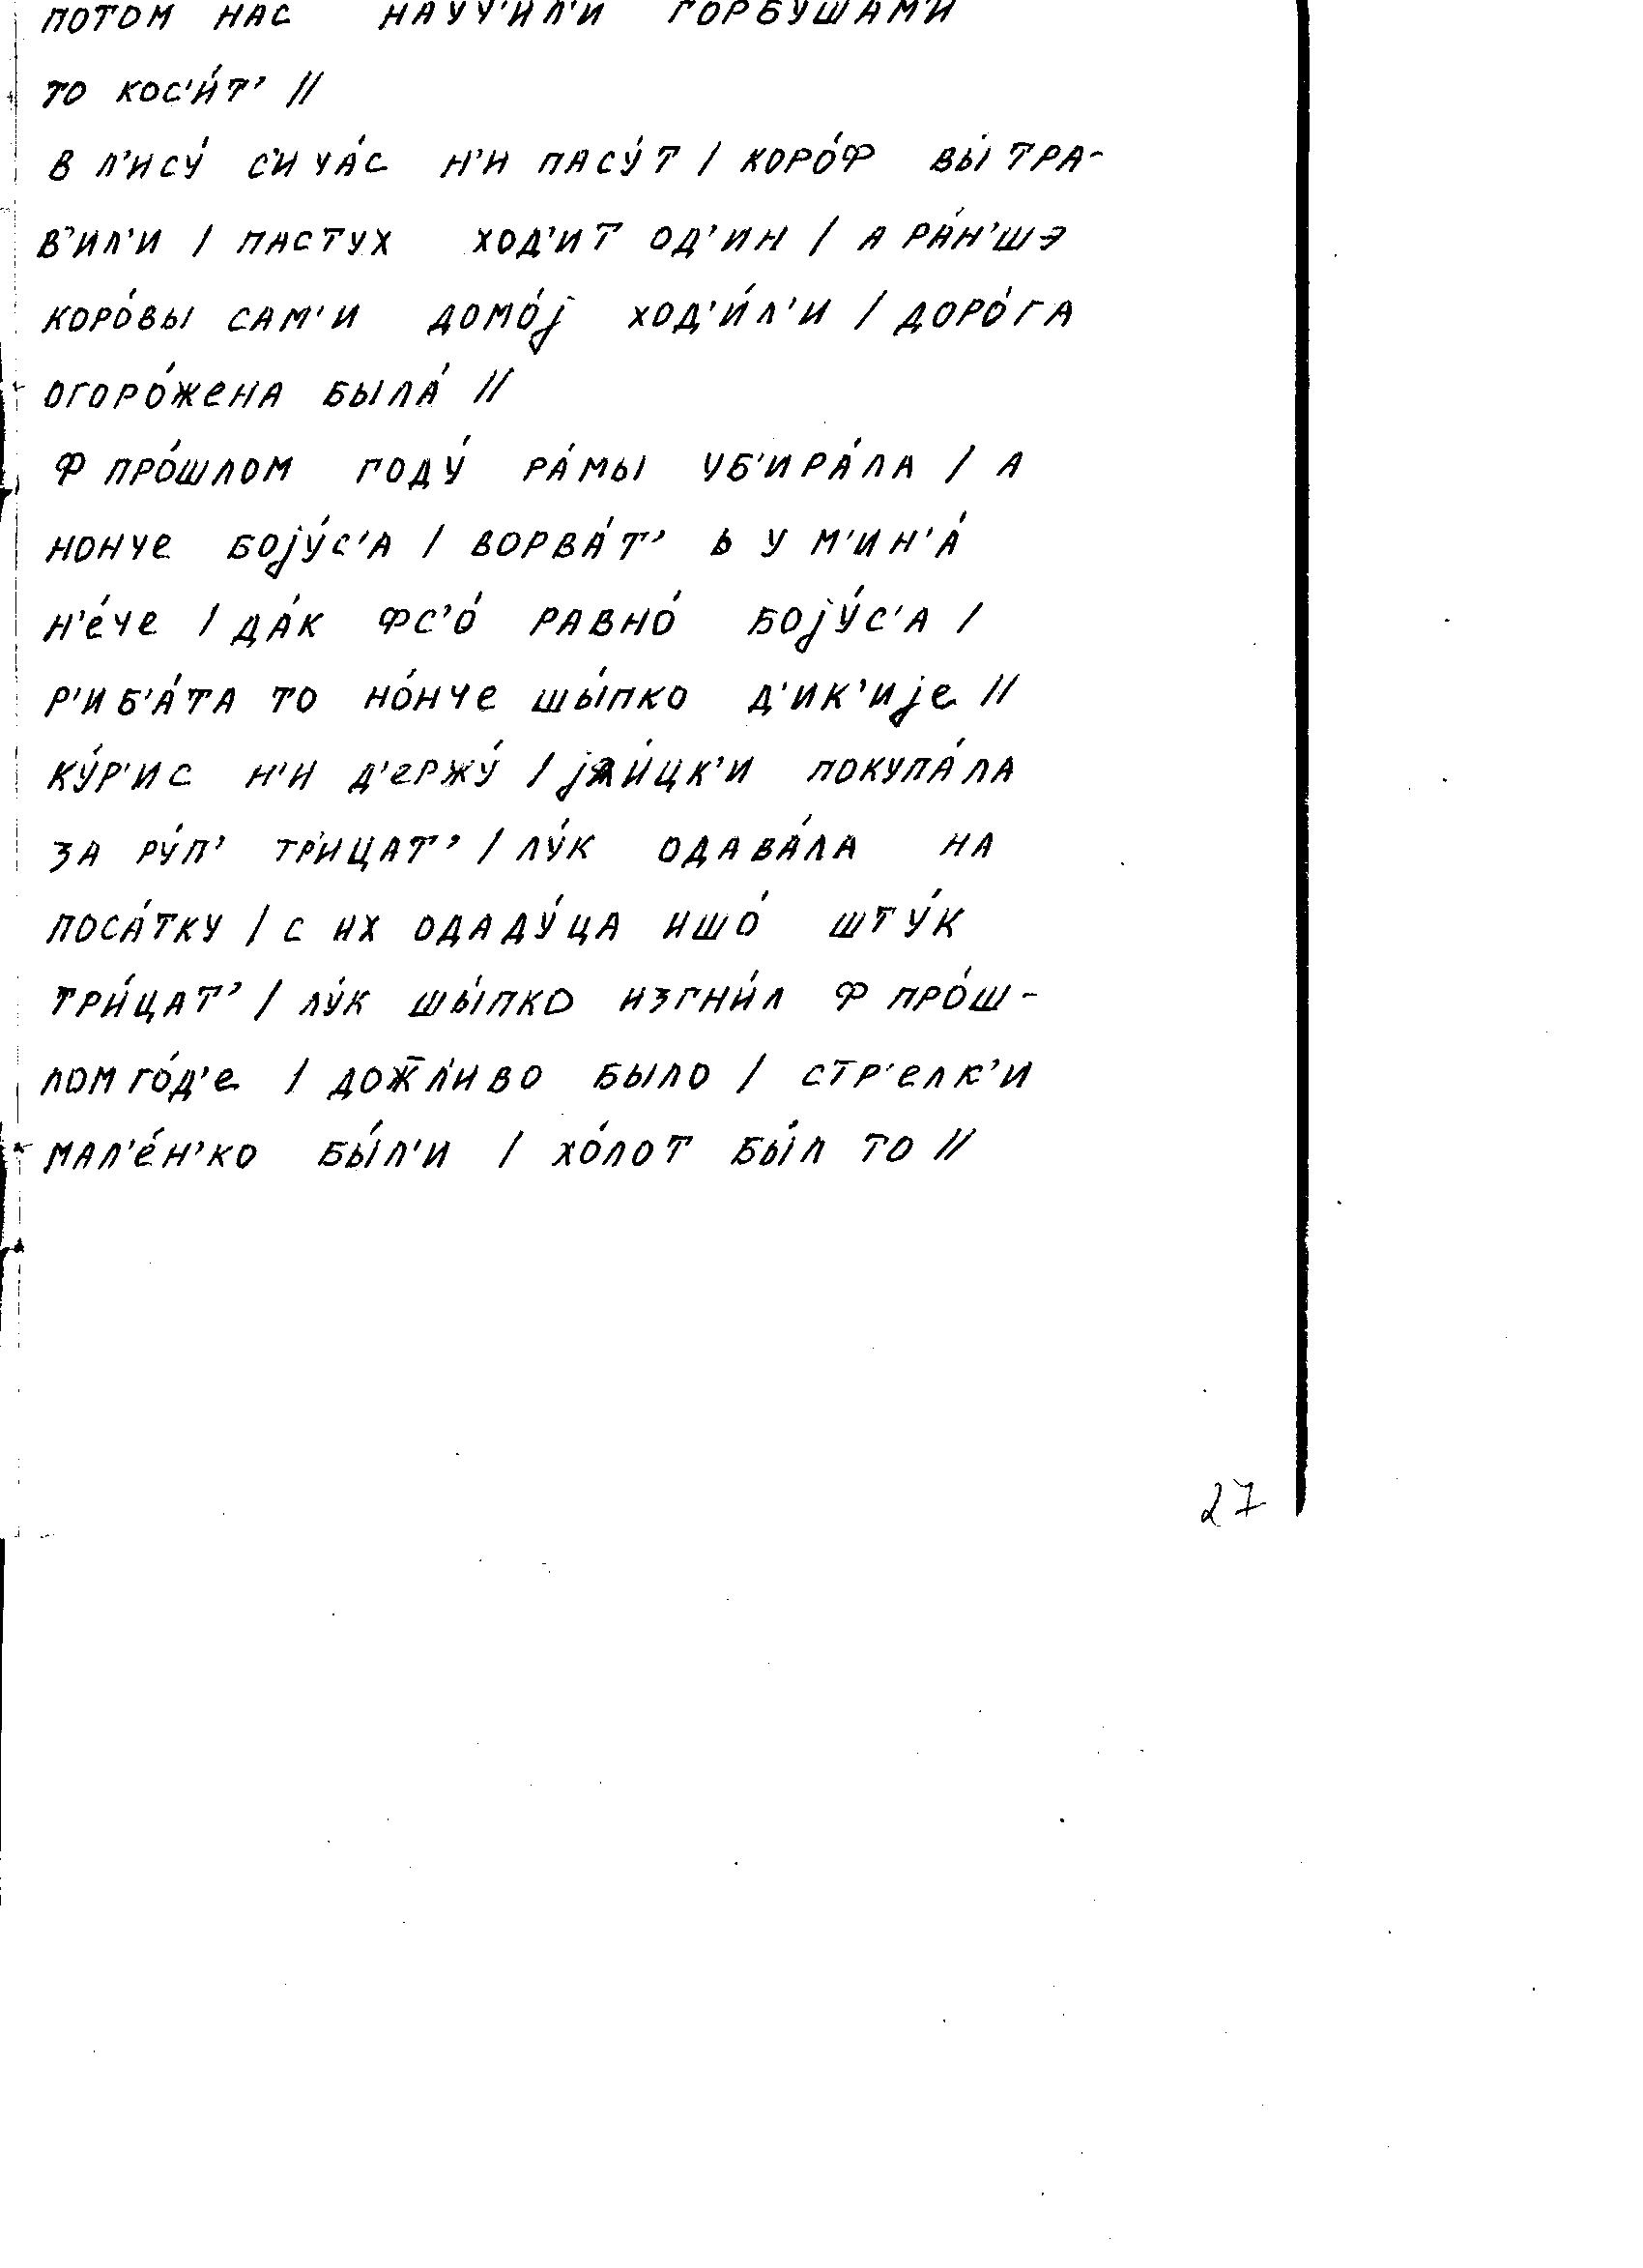 потом нас науч'ил'и горбушам'и
то кос'и́т' //
в л'ису́ с'ича́с н'и пасу́т / коро́ф вы́тра-
в'ил'и / пастух ход'ит од'ин / а ра́н'шэ
коро́вы сам'и домо́j ход'и́л'и / доро́га
огоро́жена была́ //
ф про́шлом году́ ра́мы уб'ира́ла / а
нонче боjу́с'а / ворва́т' ь у м'ин'а́
н'е́че / да́к фс'о́ равно́ боjу́с'а /
р'иб'а́та то но́нче шы́пко д'ик'иjе //
ку́р'ис н'и д'ержу́ / jaи́цк'и покупа́ла
за ру́п' трицат' / лу́к одава́ла на
поса́тку / с их ододу́ца ишо́ шту́к
три́цат' / лу́к шы́пко изгни́л ф про́ш-
лом го́д'е / дож̅л'иво было / стр'елк'и
мал'е́н'ко бы́л'и / хо́лот бы́л то //
27